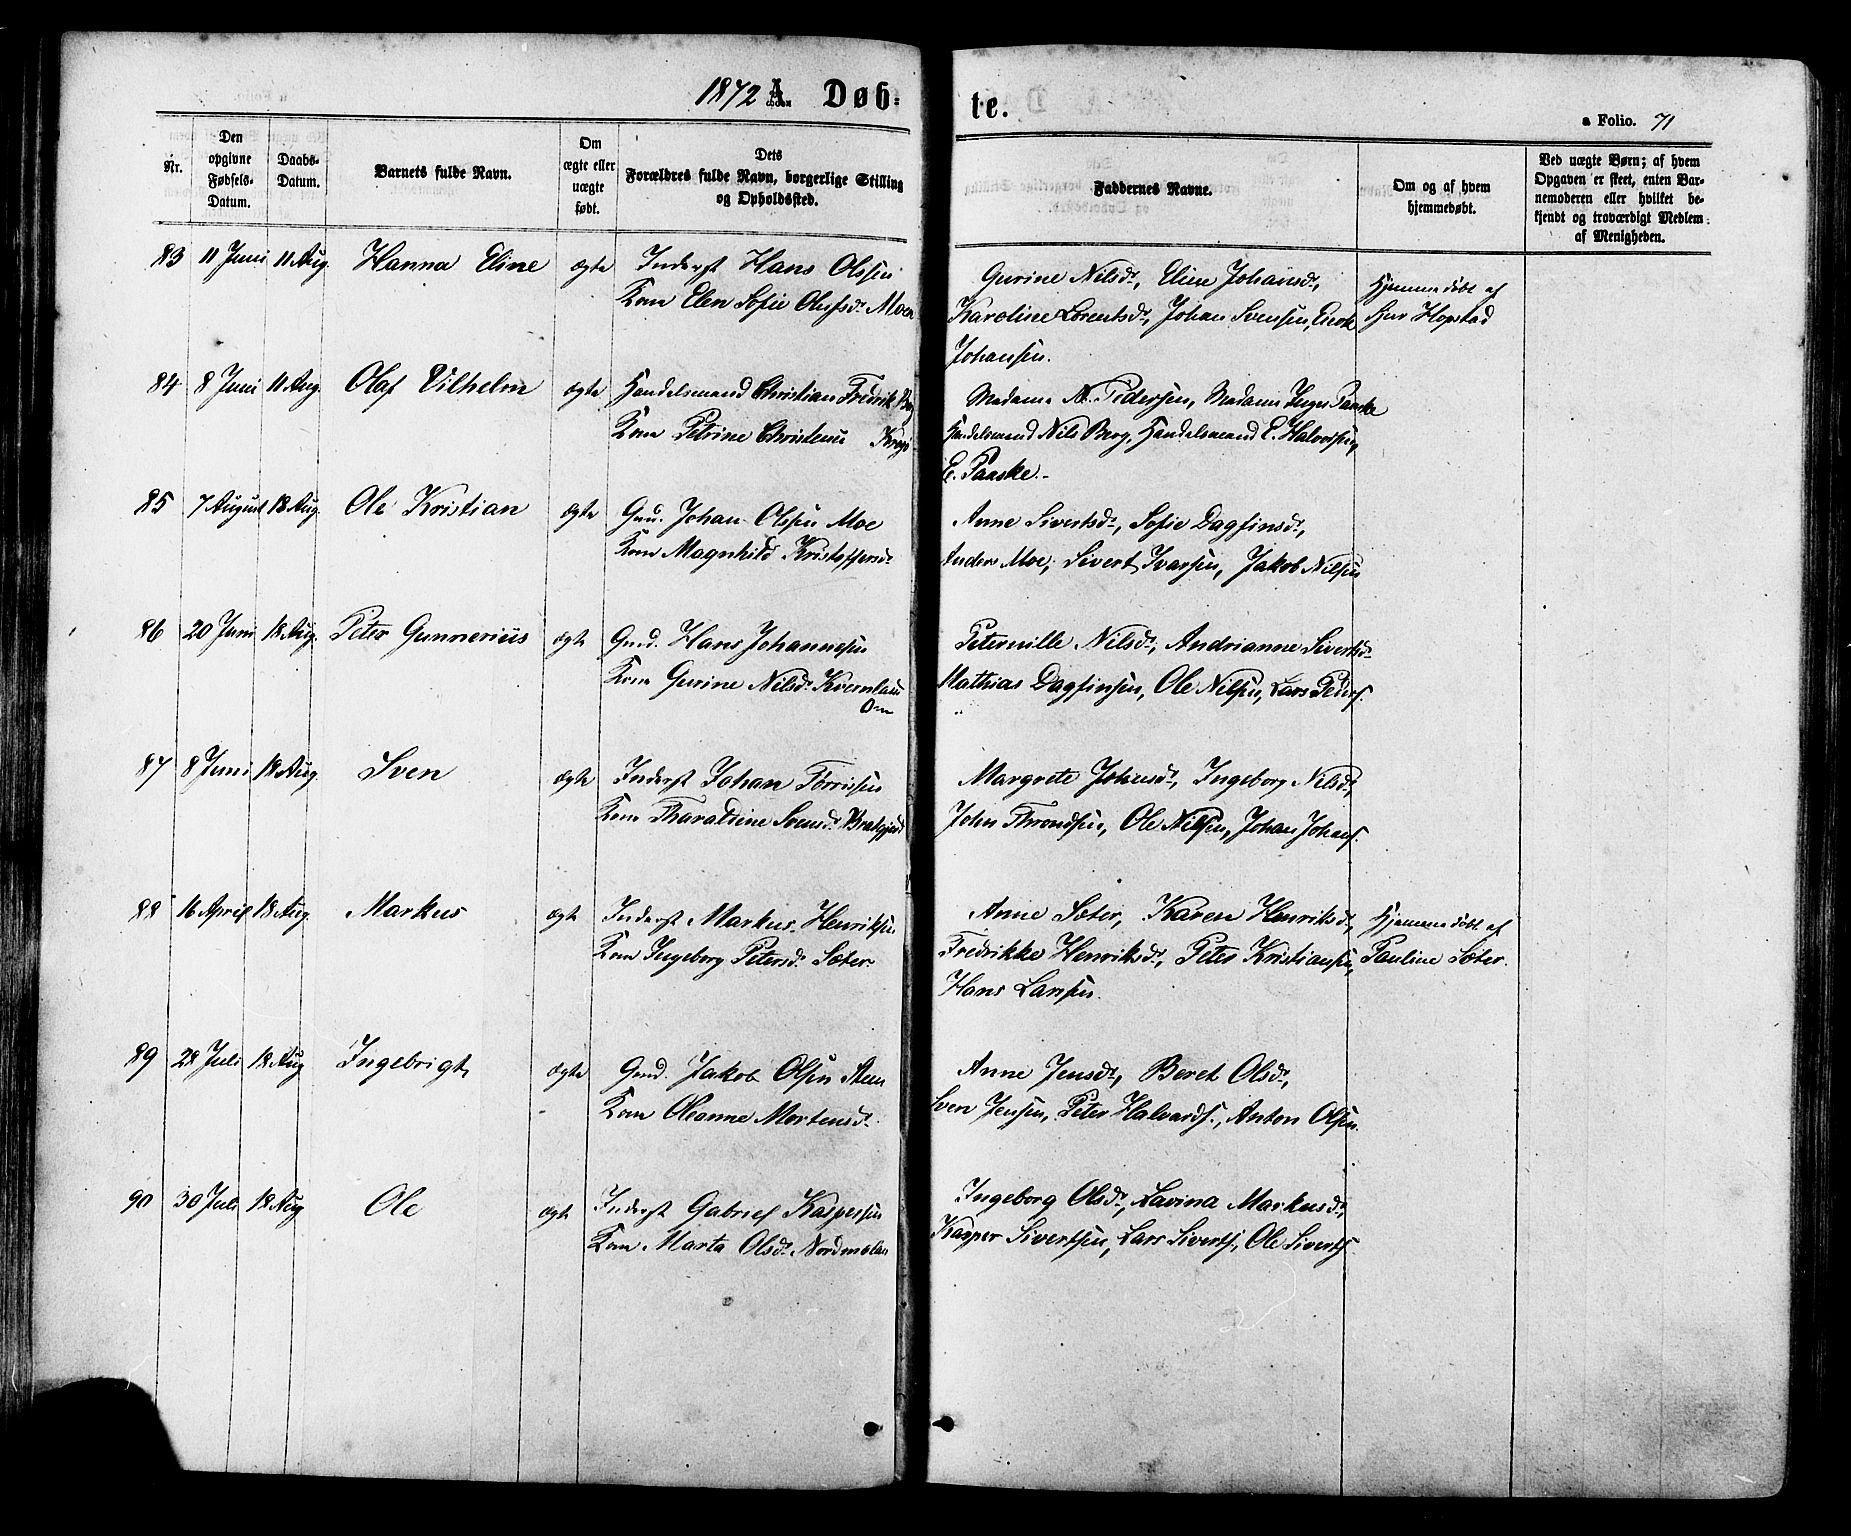 1872 A. Døb-
te.
a Folio. 71
Nr.
Den opgivne Fødsels-Datum.
Daabs-Datum.
Barnets fulde Navn.
Om ægte eller uægte født.
Dets Forældres fulde Navn, borgerlige Stilling og Opholdssted.
Faddernes Navne.
Om og af hvem hjemmedøbt.
Ved uægte Børn; af hvem Opgaven er skeet, enten Bar-nemoderen eller hvilket be-kjendt og troværdigt Medlem af Menigheden.
83 11 Juni 11 Aug. Hanna Eline ægte Inderst Hans Olsen
Kone Elen Sofie Olufsdr. Moen
Gurine Nilsdr., Eline Johansdr.,
Karoline Lorentsdr., Johan Svensen, Enok
Johansen.
Hjemmedøbt af
Hopstad
84 8 Juni 11 Aug. Olaf Vilhelm ægte Handelsmand Christian Fredrik
Kone Petrine
Madame A. Pedersen, Madame Inger Paaske
Handelsmand Nils Berg, Handelsmand E. Halvorsen,
E. Paaske.-
85 7 August 18 Aug. Ole Kristian ægte Gm. Johan Olsen Moe
Kone Magnhild Kristoffersdr.
Anne Sivertsdr., Sofie Dagfinsdr.,
Anders Moe, Sivert Ivarsen, Jakob Nilsen
86 20 Juni 18 Aug. Peter Gunnerius ægte Gmd. Hans Johannesen
Kone Gurine Nilsdr.
Peternille Nilsdr., Andrianne Sivertsdr.
Mathias Dagfinsen, Ole Nilsen, Lars Peders.
87 8 Juni 18 Aug. Sven ægte Inderst Johan Torrisen
Kone Haraldine Svensdr.
Margrete Johnsdr., Ingeborg Nilsdr.,
John Throndsen, Ole Nilsen, Johan Johans.
88 16 April 18 Aug. Markus ægte Inderst Markus Henriksen
Kone Ingeborg Petersdr. Sæter.
Anne Sæter, Karen Henriksdr.,
Fredrikke Henriksdr., Peter Kristiansen,
Hans Larsen.
Hjemmedøbt af
Pauline Sæter.
89 28 Juli 18 Aug Ingebrigt ægte Gmd. Jakob Olsen Steen
Kone Oleanne Mortensdr.
Anne Jensdr., Beret Olsdr.,
Sven Jensen, Peter Halvards., Anton Olsen.
90 30 Juli 18 Aug Ole ægte Inderst Gabriel Kaspersen
Kone Marta Olsdr. Nordmelan
Ingeborg Olsdr., Lavina Markusdr.,
Kasper Sivertsen, Lars Siverts., Ole Siverts.